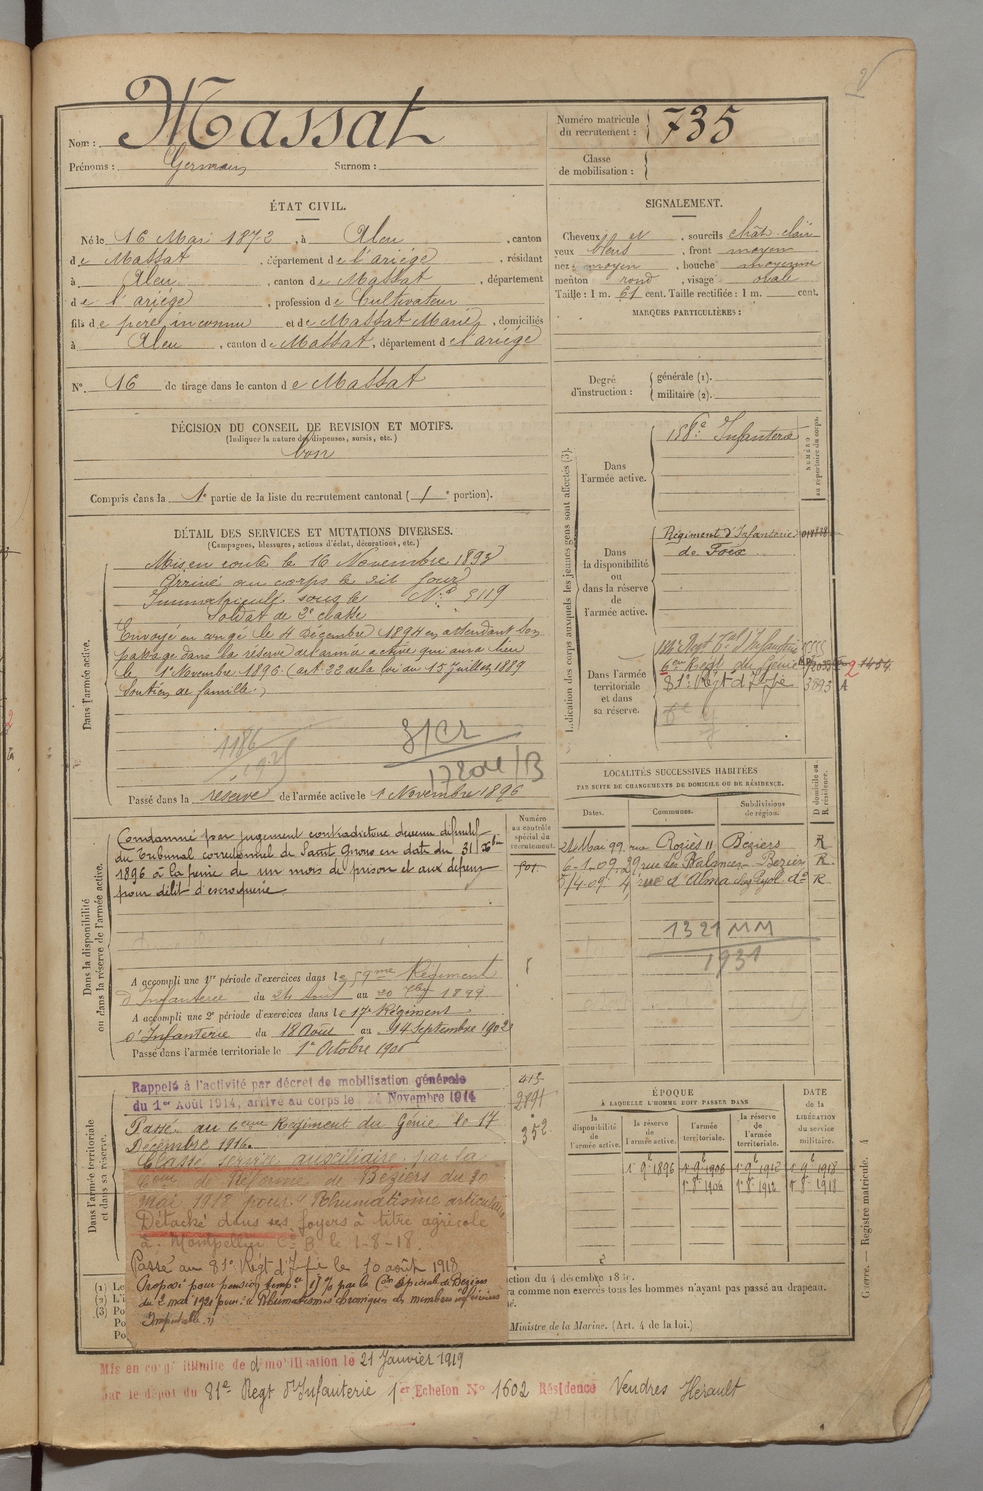 Nom : Massat
Prénoms : Germain Surnom :
Numéro matricule du recrutement : 735
Classe de mobilisation :
ÉTAT CIVIL.
Né le 16 Mai 1872, à Aleu, canton
de Massat, département de l'ariége, résidant
à Aleu, canton de Massat, département
de l'ariége, profession de Cultivateur
fils de père inconnu et de Massat Marie, domiciliés
à Aleu, canton de Massat, département de l'ariége
N° 16 de tirage dans le canton de Massat
DÉCISION DU CONSEIL DE REVISION ET MOTIFS.
(Indiquer la nature des dispenses, sursis, etc.)
bon
Compris dans la 1e partie de la liste du recrutement cantonal (1e portion).
SIGNALEMENT.
Cheveux et, sourcils chât. clair
yeux bleus, front moyen
nez moyen, bouche moyenne
menton rond, visage ovale
Taille : 1 m. 61 cent. Taille rectifiée : 1 m. cent.
MARQUES PARTICULIÈRES :
Degré d'instruction : générale (1).
militaire (2).
DÉTAIL DES SERVICES ET MUTATIONS DIVERSES.
(Campagnes, blessures, actions d'éclat, décorations, etc.)
Dans l'armée active.
Mis en route le 16 Novembre 1893
Arrivé au corps le dit jour
Immatriculé sous le N° 5119
Soldat de 2e classe
Envoyé en congé le 4 Décembre 1894 en attendant son
passage dans la réserve de l'armée active qui aura lieu
le 1er Novembre 1896 (art 22 de la loi du 15 Juillet 1889
Soutien de famille.)
1186
81 CR
1720U/B
Passé dans la réserve de l'armée active le 1 Novembre 1896
Indication des corps auxquels les jeunes gens sont affectés (3).
NUMÉRO au répertoire du corps.
Dans l'armée active.
Infanterie
Dans la disponibilité ou dans la réserve de l'armée active.
Régiment d'Infanterie
de Foix
Dans l'armée territoriale et dans sa réserve.
6e Regt du Génie 1454
81e Régt d'Infie 3893 A
LOCALITÉS SUCCESSIVES HABITÉES
PAR SUITE DE CHANGEMENTS DE DOMICILE OU DE RÉSIDENCE.
Dates. Communes. Subdivisions de région. D domicile ou R résidence.
21 Mai 99 rue Roziés 11 Béziers R
6-1-09 29 rue des Balances Beziers R
4-09 4, rue d'Alma do R
1321 MM
1931
Dans la disponibilité ou dans la réserve de l'armée active.
Numéro au contrôle spécial du recrutement.
501
Condamné par jugement contradictoire devenu définitif
du Tribunal correctionnel de Saint Girons en date du 31 Xbre
1896 à la peine de un mois de prison et aux dépens
pour délit d'escroquerie
A accompli une 1re période d'exercices dans le 59me Régiment
d'Infanterie du 24 aout au 20 7bre 1899
A accompli une 2e période d'exercices dans le 17e Régiment
d'Infanterie du 18 Aout au 14 Septembre 1902
Passé dans l'armée territoriale le 1er Octobre 1906
Dans l'armée territoriale et dans sa réserve.
Rappelé à l'activité par décret de mobilisation générale
du 1er Août 1914, arrivé au corps le Novembre 1914
Passé au 6eme Régiment du Génie le 17
Décembre 1916.
Classé service auxiliaire par la
Com de Réforme de Béziers du 30
mai 1918 pour "Rhumatisme articulaire
Détaché dans ses foyers à titre agricole
à Montpellier le 1-8-18
Passé au 81e Régt d'Infie le 10 août 1918
Proposé pour pension temp. par la Con Spéciale de Béziers
du 2 mai 1920 pour : Rhumatismes chroniques des membres inférieurs
Imputable."
413
2891
352
ÉPOQUE
À LAQUELLE L'HOMME DOIT PASSER DANS
la disponibilité de l'armée active. la réserve de l'armée active. l'armée territoriale. la réserve de l'armée territoriale.
DATE de la LIBÉRATION du service militaire.
1er 9e 1896 1er 9e 1906 1er 9e 1912 1er 9e 1918
1er 8e 1906 1er 8e 1912 1er 8e 1918
(1) Le
(2) L'i
(3) Po
Po
Po
ction du 4 décembre 18
ra comme non exercés tous les hommes n'ayant pas passé au drapeau.
Ministre de la Marine. (Art. 4 de la loi.)
Guerre. — Registre matricule. 4
Mis en congé illimité de démobilisation le 21 Janvier 1919
par le dépôt du 81e Regt d'Infanterie 1er Echelon N° 1602 Résidence Vendres Hérault